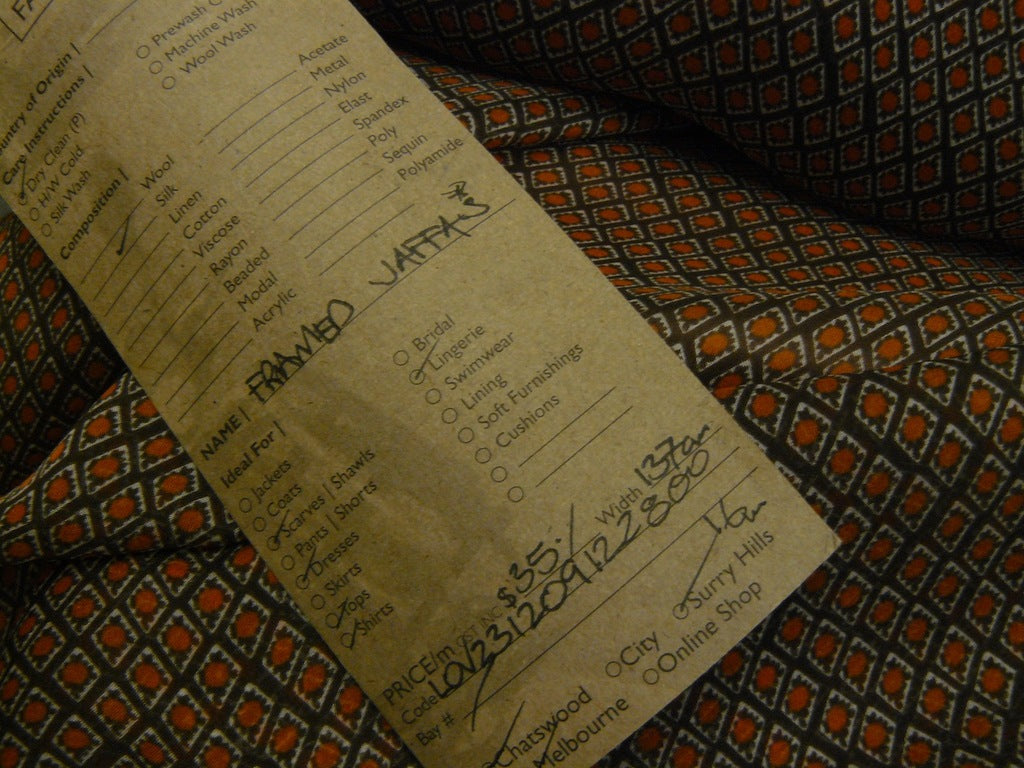 Prewash
Machine Wash
Wool Wash
Country of Origin |
Care Instructions |
Dry Clean (P)
H/W Cold
Silk Wash
Composition |
Wool
Silk
Linen
Cotton
Viscose
Rayon
Beaded
Modal
Acrylic
Acetate
Metal
Nylon
Elast
Spandex
Poly
Sequin
Polyamide
NAME | FRAMED JAFFA'S
Ideal For |
Jackets
Coats
Scarves | Shawls
Pants | Shorts
Dresses
Skirts
Tops
Shirts
Bridal
Lingerie
Swimwear
Lining
Soft Furnishings
Cushions
PRICE/m GST INC $35./ Width 137cm
Code LOV231209122800
Bay #
Chatswood
City
Surry Hills
Melbourne
Online Shop